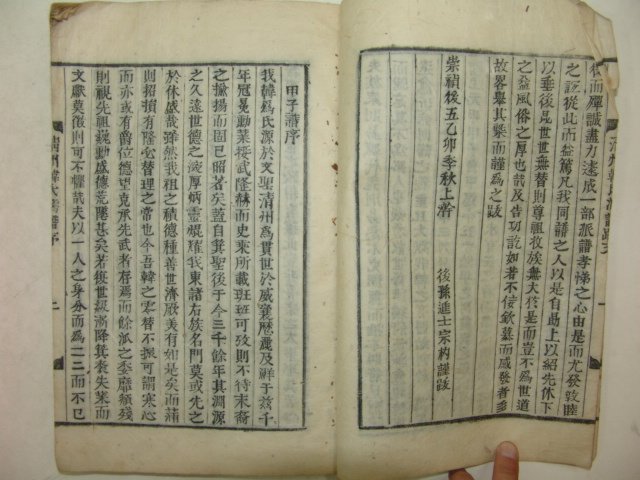 從而殫誠盡力遂成一部派譜孝悌之心由是而尤發敦睦
之誼從此而益篤凡我同譜之人以是自勖上以紹先休下
以垂後昆世世無替則尊祖收族無大於是而豈不爲世道
之益風俗之厚也哉及告功說如若不佞欽慕而感發者多
故畧舉其槩而謹爲之跋
崇禎後五乙卯季秋上澣
後孫進士宗 謹跋
甲子譜序
我韓爲氏源於文聖清州爲貫世於威襄歷麗及鮮于玆千
年冠冕動業接武隆赫而史乘所載班班可攷則不待末裔
之揄揚而固已昭著矣蓋自箕聖後于今三千餘年其淵源
之久遠世德之深厚炳靈焜耀我東諸右族名門莫或先之
於休盛哉雖然我祖之積德種善世濟厥美有如是矣而諸
則招損有隆必替理之常也今吾韓之零替不振可謂寒心
而亦或有爵位德望克承先武者存焉而餘派之委靡頹殘
則視先祖勳動盛德荒墜甚矣若後世級漸降箕裘失業而
文獻莫徵則可不懼哉夫以一人之身分而爲一二而不已
清州韓氏派譜序
二
清州韓氏派譜跋
一